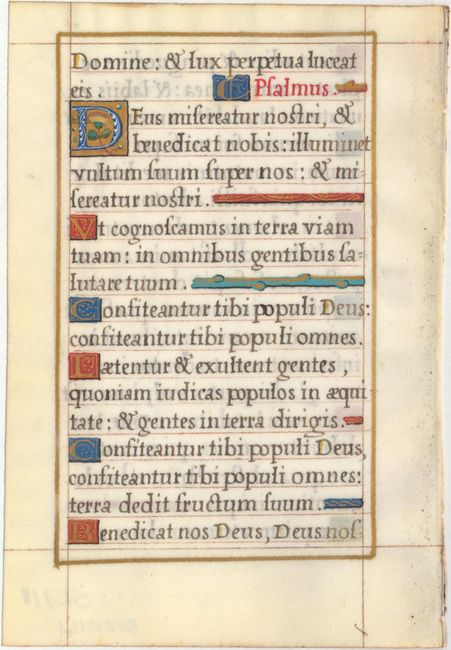 Domine: & lux perpetua luceat
eis. Psalmus.
Deus misereatur nostri, &
benedicat nobis: illuminet
vultum suum super nos: & mi-
sereatur nostri.
Vt cognoscamus in terra viam
tuam: in omnibus gentibus sa-
lutare tuum.
Confiteantur tibi populi Deus:
confiteantur tibi populi omnes.
Lætentur & exultent gentes,
quoniam iudicas populos in æqui-
tate: & gentes in terra dirigis.
Confiteantur tibi populi Deus,
confiteantur tibi populi omnes:
terra dedit fructum suum.
Benedicat nos Deus, Deus nos-